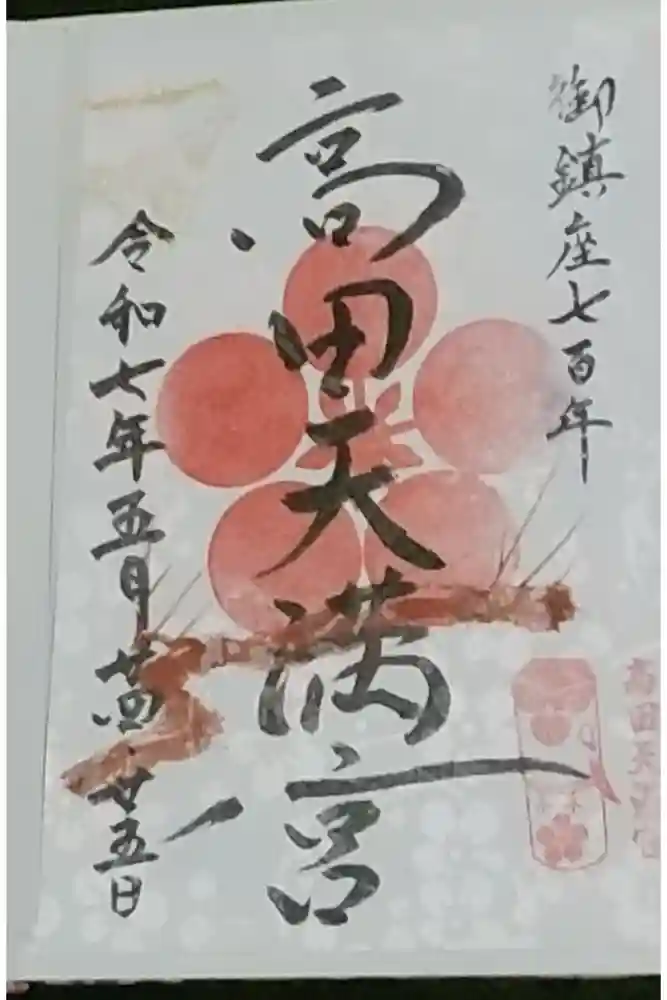 御鎮座七百年
高田天満宮
令和七年五月廿四・廿五日
高田天満宮